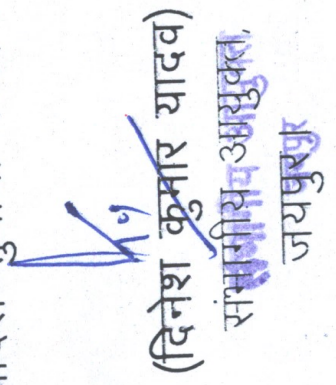 (दिनेश कुमार यादव)
संभागीय आयुक्त,
जयपुर।